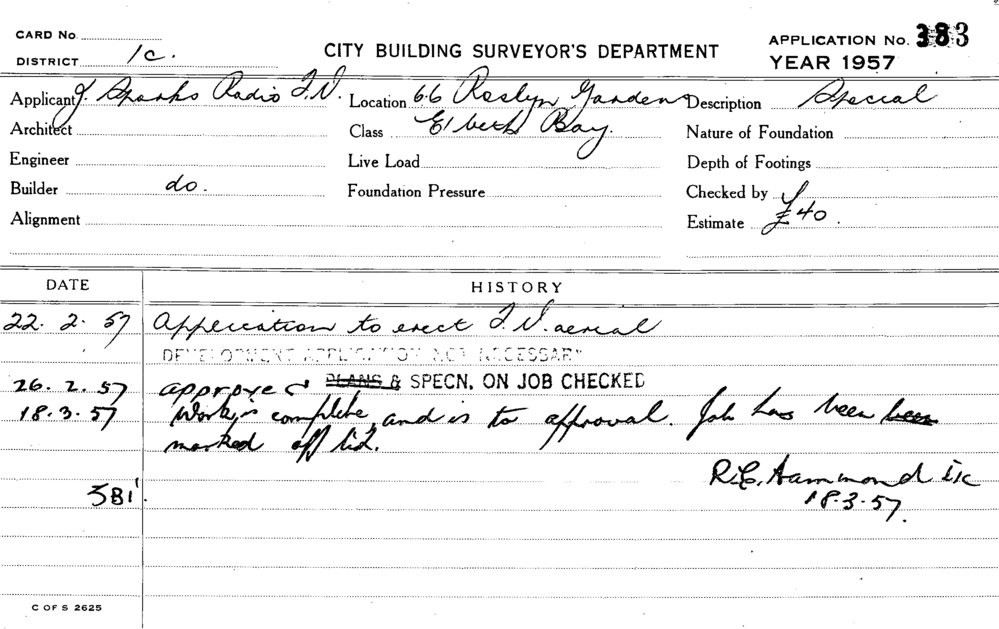 CARD No.
DISTRICT 1c.
CITY BUILDING SURVEYOR'S DEPARTMENT
APPLICATION No. 383
YEAR 1957
Applicant J. Sparks Radio T.V. Location 66 Roslyn Gardens Description Special
Architect Class El beth Bay. Nature of Foundation
Engineer Live Load Depth of Footings
Builder do. Foundation Pressure Checked by
Alignment Estimate £40.
DATE HISTORY
22. 2. 57 Application to erect T.V. aerial
DEVELOPMENT APPLICATION NOT NECESSARY
26. 2. 57 approved PLANS & SPECN. ON JOB CHECKED
18. 3. 57 Work is complete, and is to approval. Job has been been
marked off list.
R.C. Hammond 1c
SB1.
18.3.57.
C OF S 2625